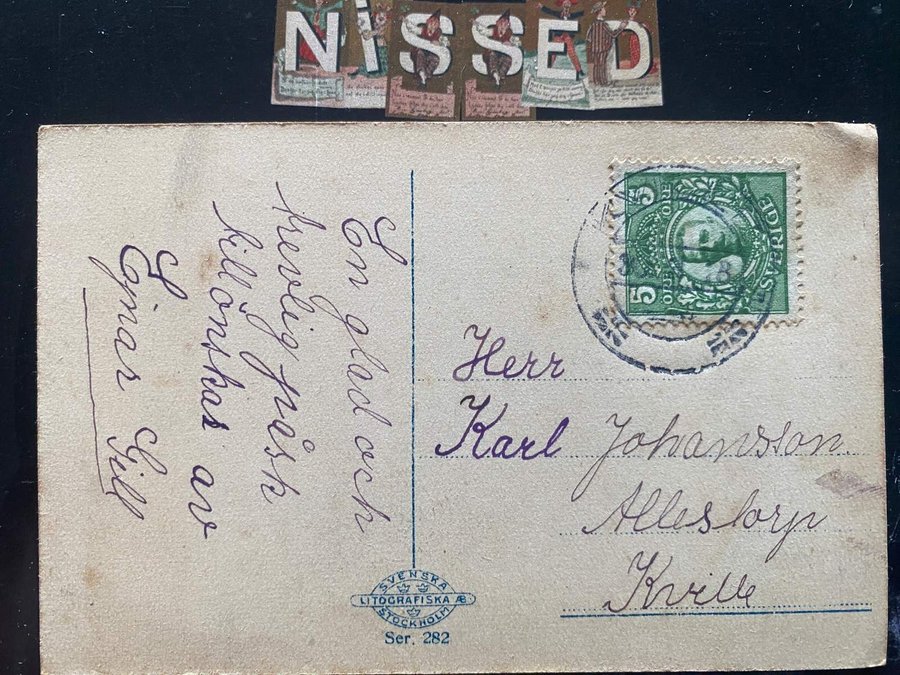 NISSED
En glad och
trevlig påsk
tillönskas av
Ejnar Gill
Herr
Karl Johansson.
Allestorp
Kville
5 ÖRE 5
SVERIGE
SVENSKA
LITOGRAFISKA AB.
STOCKHOLM
Ser. 282